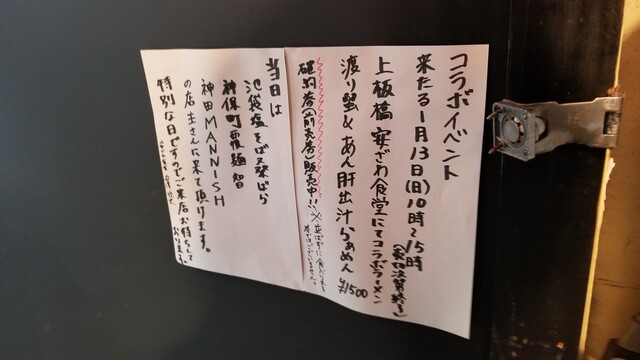 コラボイベント
来たる1月13日(日)10時〜15時
(売切次第終了)
上板橋 安ざわ食堂にてコラボラーメン
渡り蟹&あん肝出汁らぁめん ¥1500
確約券(前売券)販売中!!
※並ばずに食べれる
当日は
池袋塩そば
神保町 覆麺智
神田MANNISH
の店主さんに来て頂けます。
特別な日ですのでご来店お待ちして
おります。